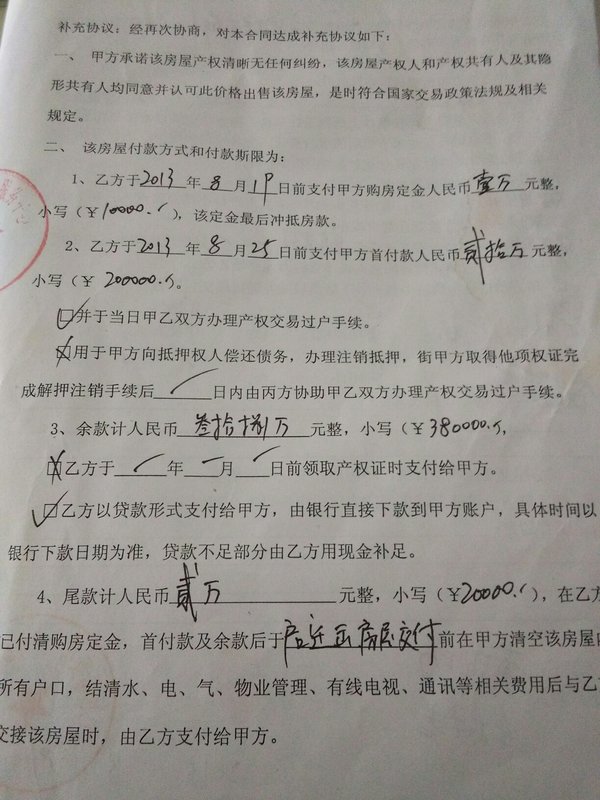 补充协议：经再次协商，对本合同达成补充协议如下：
一、 甲方承诺该房屋产权清晰无任何纠纷，该房屋产权人和产权共有人及其隐
形共有人均同意并认可此价格出售该房屋，是时符合国家交易政策法规及相关
规定。
二、 该房屋付款方式和付款期限为：
1、乙方于2013年8月19日前支付甲方购房定金人民币壹万元整，
小写（￥10000.），该定金最后冲抵房款。
2、乙方于2013年8月25日前支付甲方首付款人民币贰拾万元整，
小写（￥200000.）。
☑并于当日甲乙双方办理产权交易过户手续。
☒用于甲方向抵押权人偿还债务，办理注销抵押，街甲方取得他项权证完
成解押注销手续后 / 日内由丙方协助甲乙双方办理产权交易过户手续。
3、余款计人民币叁拾捌万元整，小写（￥380000.，
☒乙方于 / 年 / 月 / 日前领取产权证时支付给甲方。
☑乙方以贷款形式支付给甲方，由银行直接下款到甲方账户，具体时间以
银行下款日期为准，贷款不足部分由乙方用现金补足。
4、尾款计人民币贰万元整，小写（￥20000.），在乙方
已付清购房定金，首付款及余款后于房屋交付前在甲方清空该房屋内
所有户口，结清水、电、气、物业管理、有线电视、通讯等相关费用后与乙方
交接该房屋时，由乙方支付给甲方。